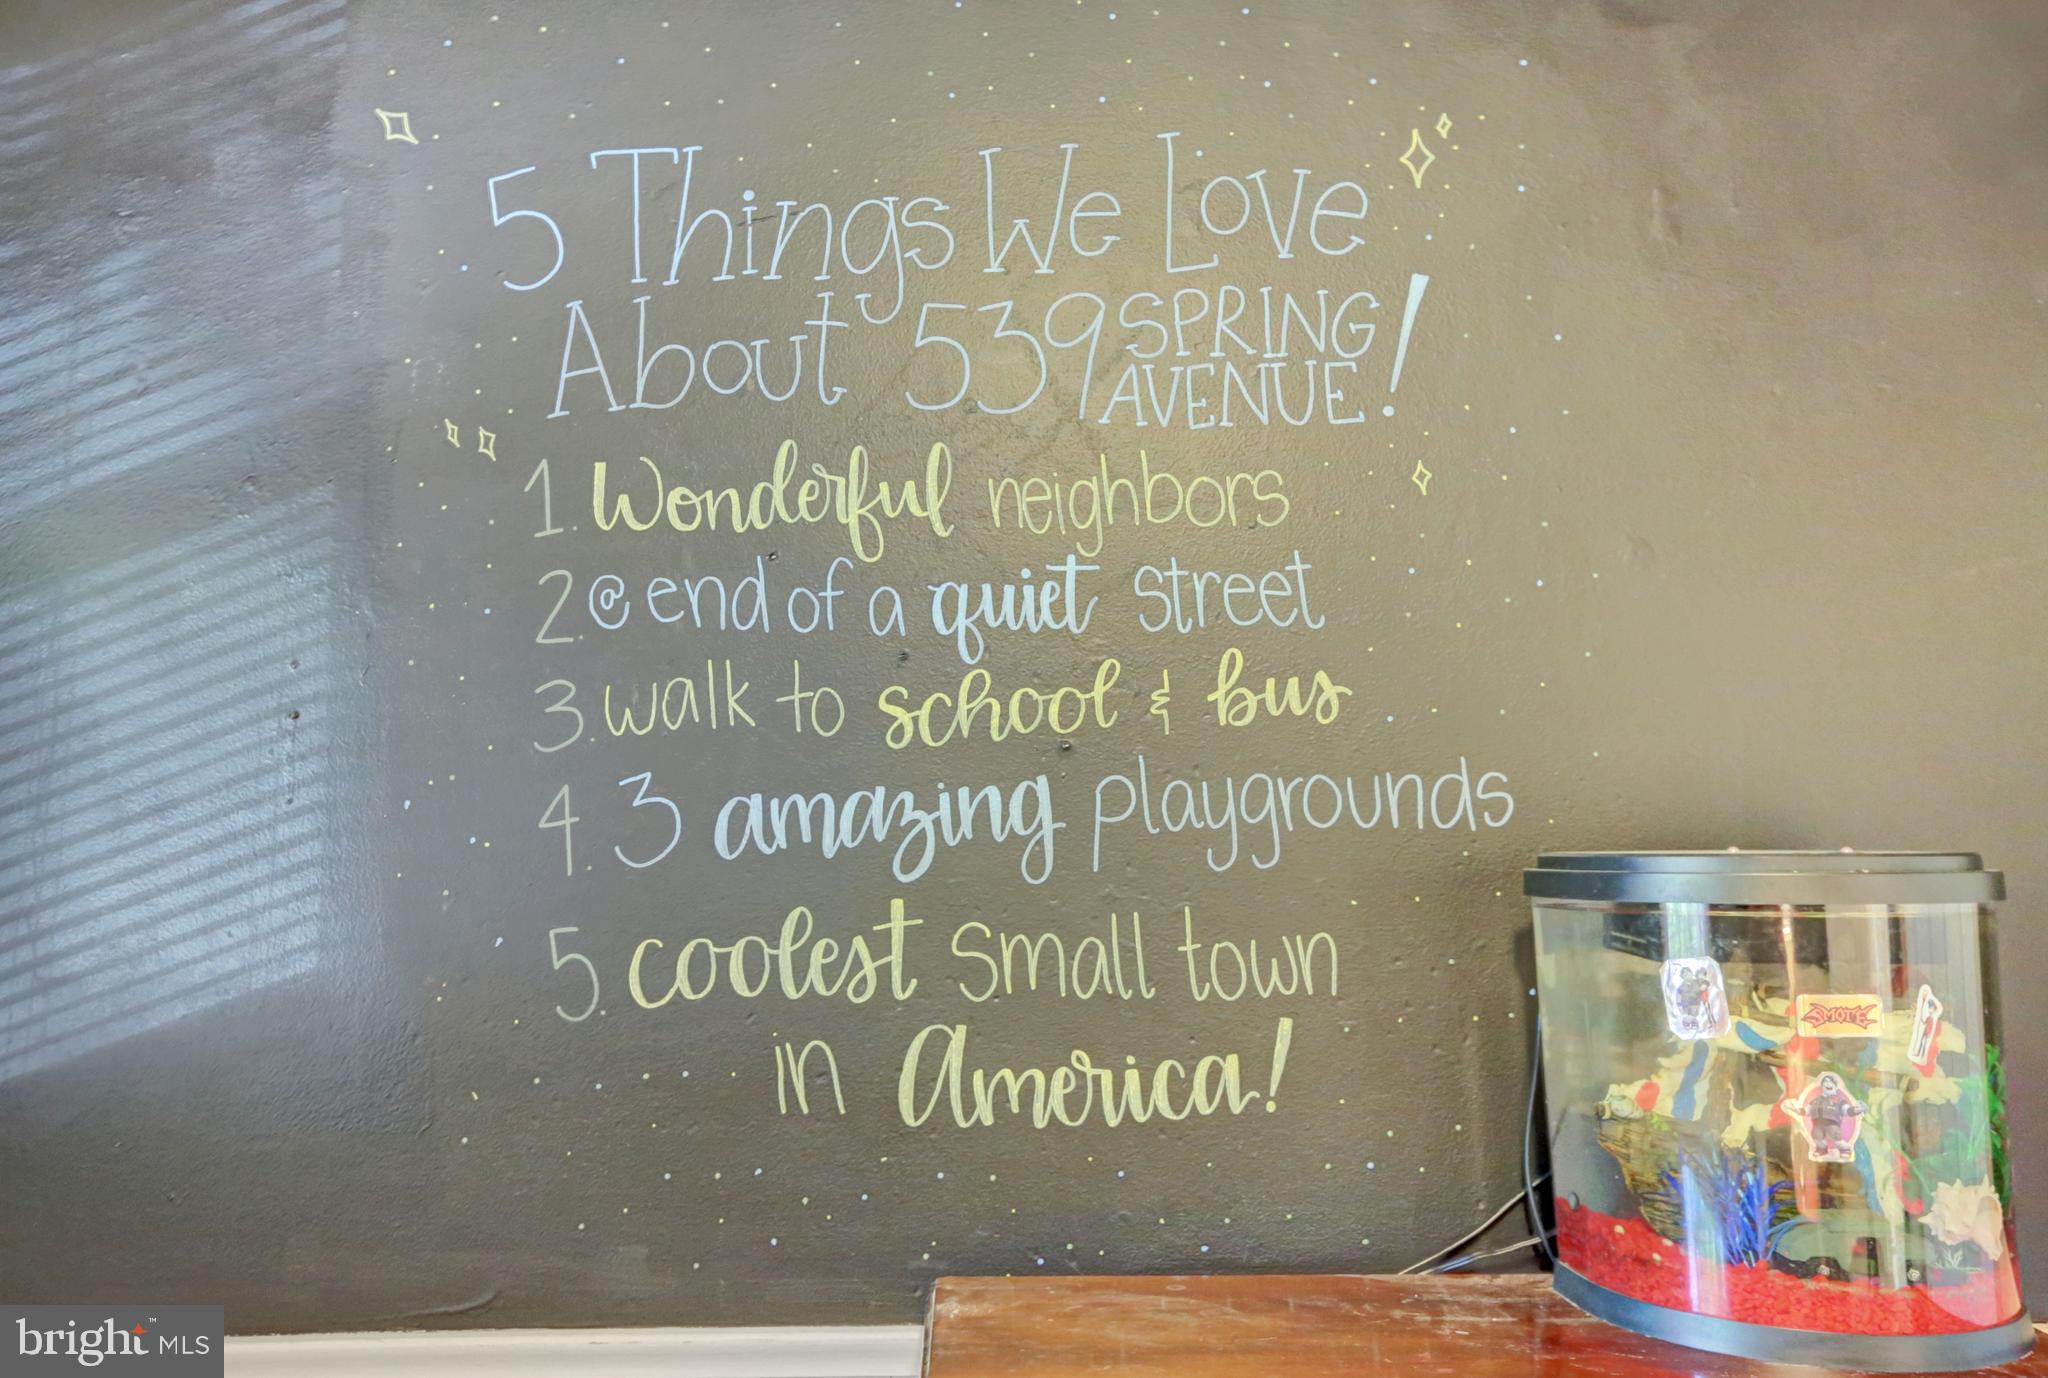 5 Things We Love
About 539 SPRING AVENUE!
1. Wonderful neighbors
2. @ end of a quiet street
3. walk to school & bus
4. 3 amazing playgrounds
5. coolest small town
in America!
SMOTE
bright™ MLS